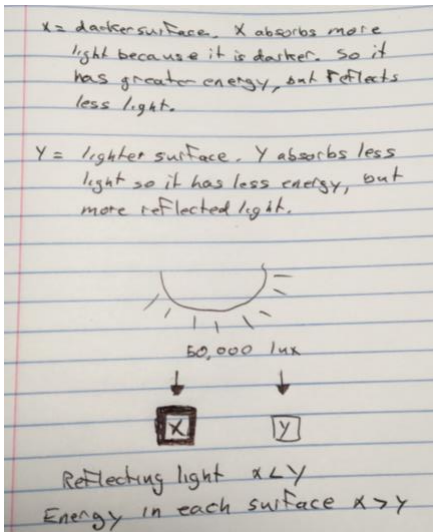 X = darker surface. X absorbs more
light because it is darker. So it
has greater energy, but reflects
less light.
Y = lighter surface. Y absorbs less
light so it has less energy, but
more reflected light.
50,000 lux
X Y
Reflecting light x < y
Energy in each surface x > y